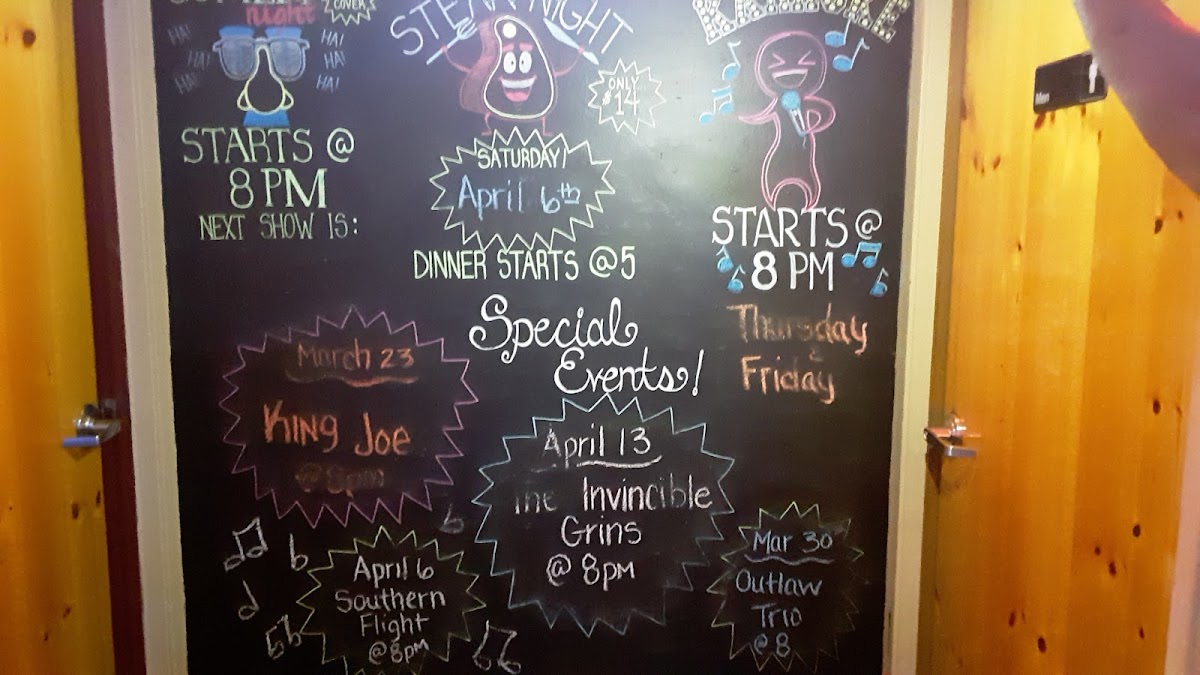 night
2 COVERS
HA!
HA!
HA!
HA!
HA!
HA!
STARTS @
8 PM
NEXT SHOW IS:
STEAK NIGHT
ONLY
$14
SATURDAY!
April 6th
DINNER STARTS @5
STARTS @
8 PM
Thursday
&
Friday
Special
Events!
March 23
King Joe
@ 8pm
April 13
The Invincible
Grins
@ 8pm
April 6
Southern
Flight
@ 8pm
Mar 30
Outlaw
Trio
@ 8
Men